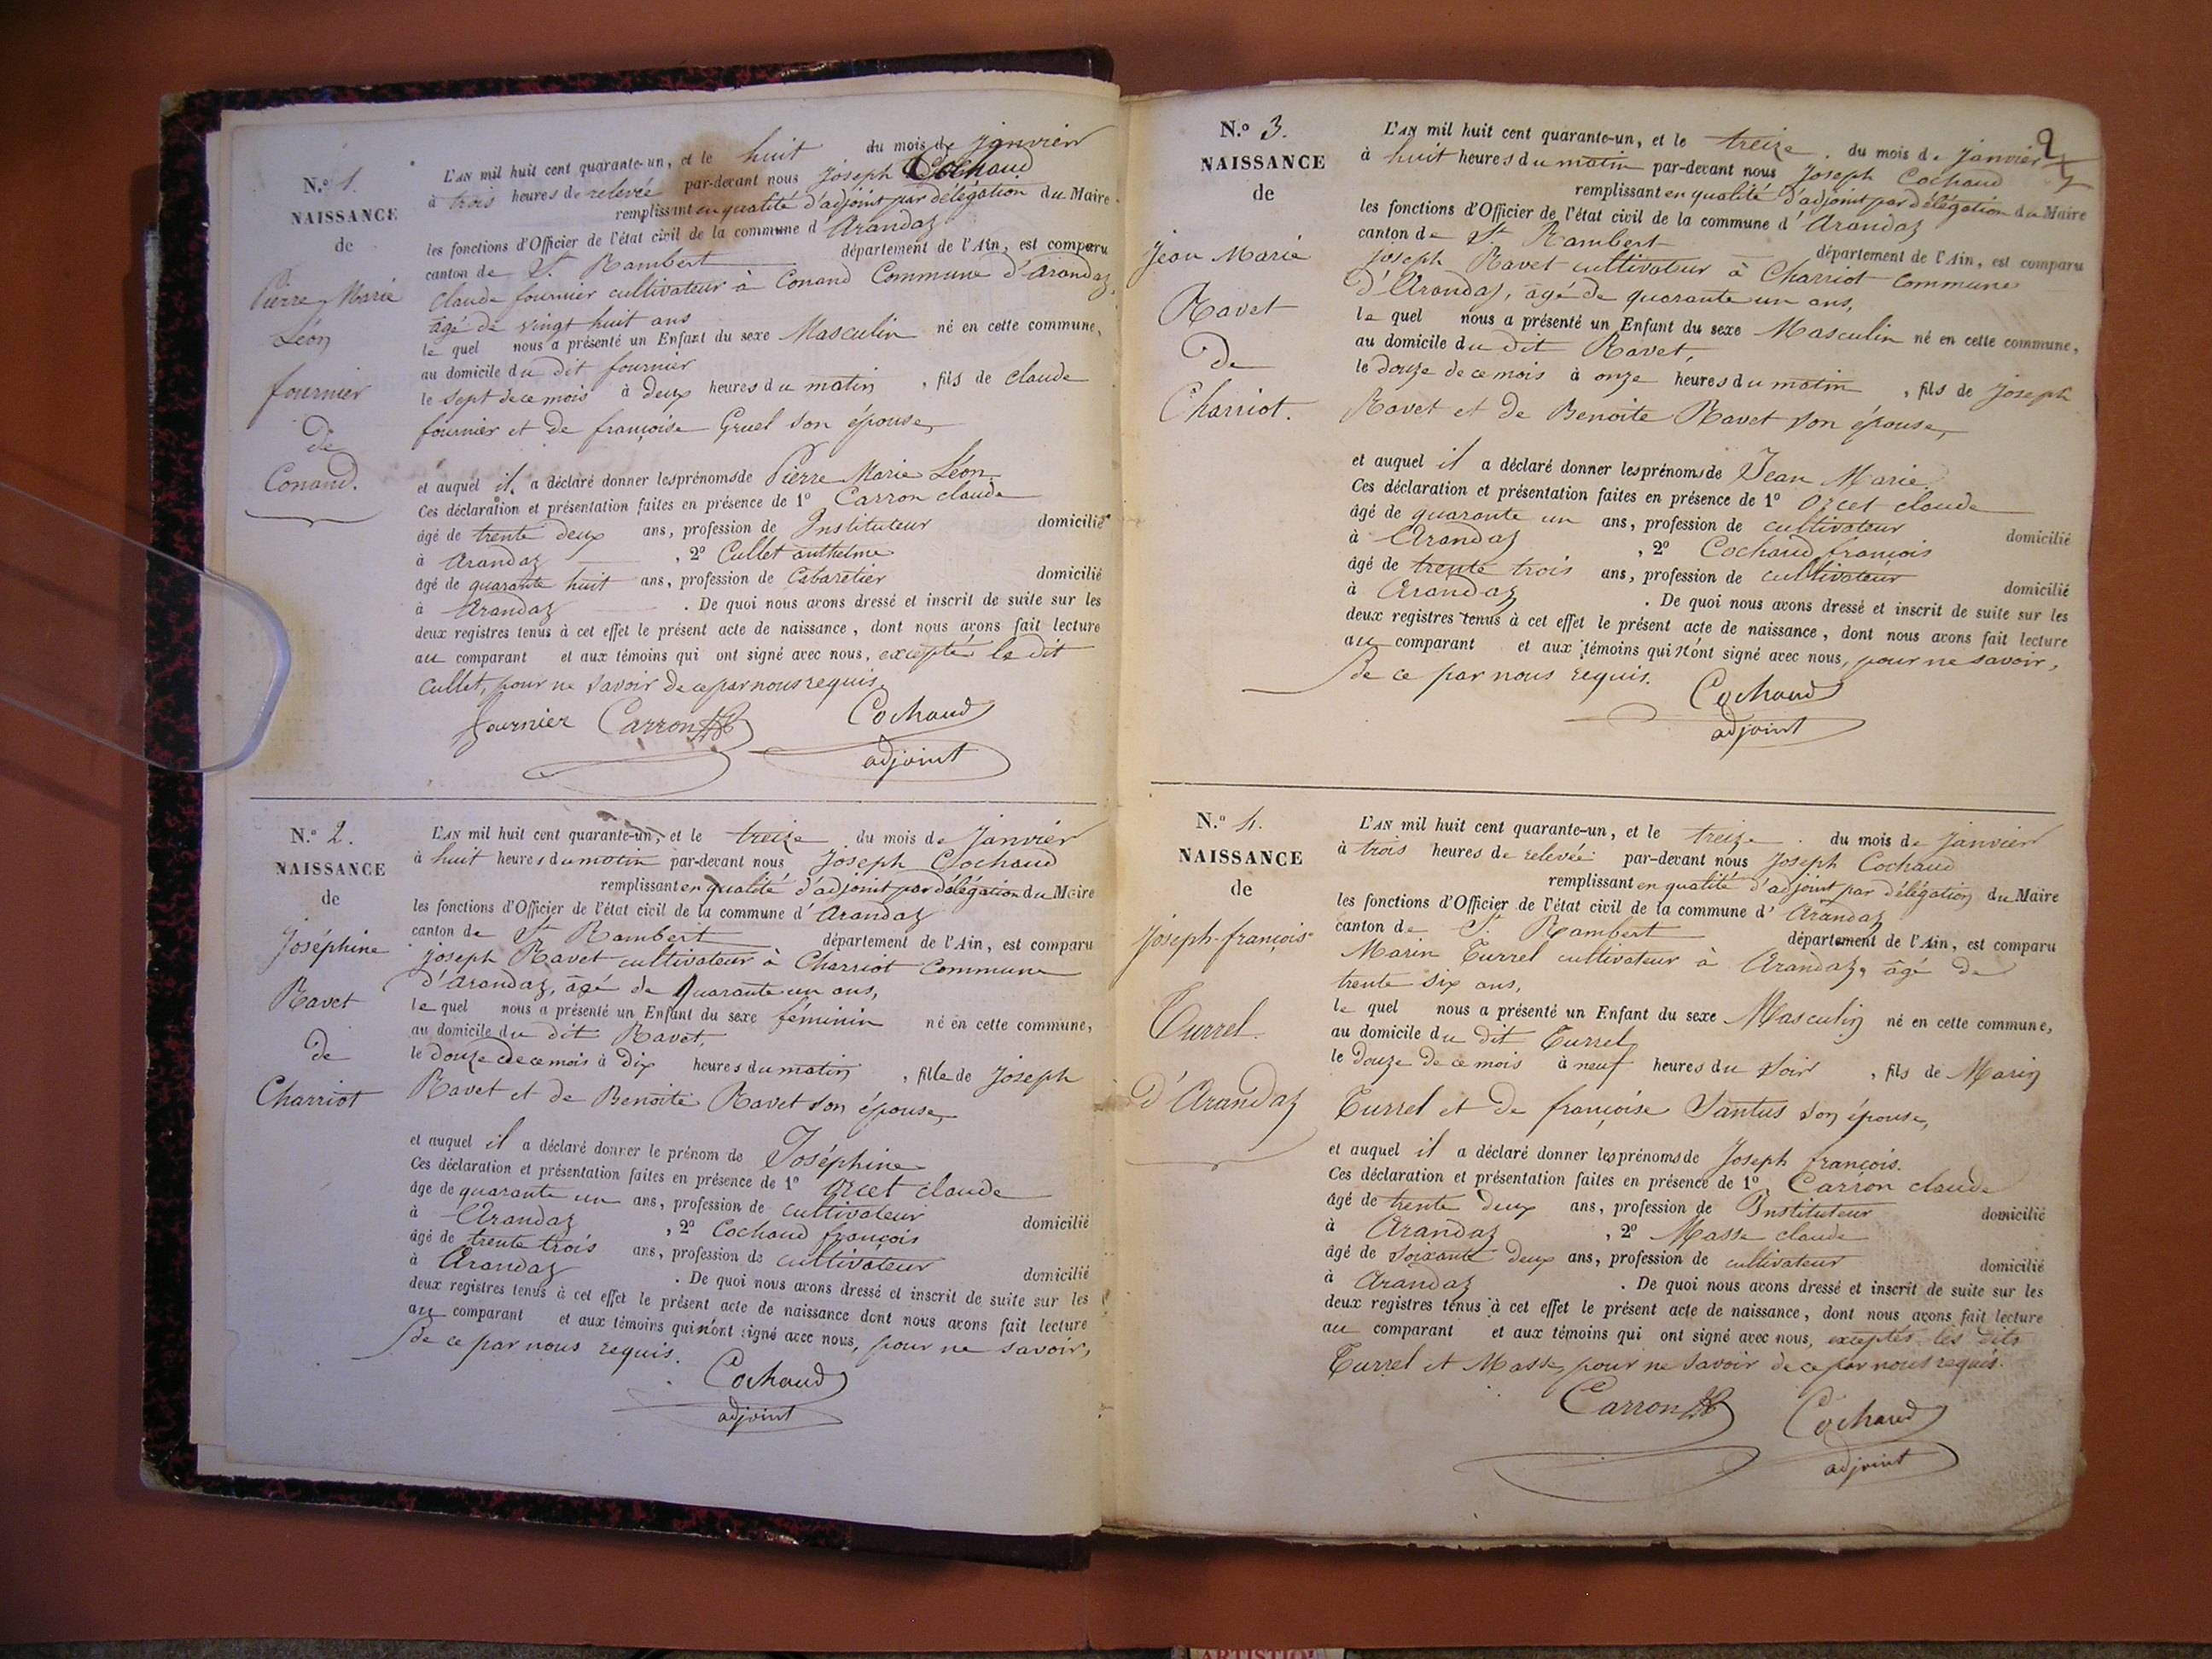 N.º 1.
NAISSANCE
de
Pierre Marie
Léon
fournier
de
Conand.
L'AN mil huit cent quarante-un, et le huit du mois de janvier
à trois heures de relevée par-devant nous Joseph Cochaud
remplissant en qualité d'adjoint par délégation du Maire
les fonctions d'Officier de l'état civil de la commune d'Arandaz
canton de St. Rambert département de l'Ain, est comparu
Claude fournier cultivateur à Conand Commune d'Arandaz,
âgé de vingt huit ans
le quel nous a présenté un Enfant du sexe Masculin né en cette commune,
au domicile du dit fournier
le sept de ce mois à deux heures du matin, fils de claude
fournier et de françoise Gruel son épouse,
et auquel il a déclaré donner les prénoms de Pierre Marie Léon
Ces déclaration et présentation faites en présence de 1º Carron claude
âgé de trente deux ans, profession de Instituteur domicilié
à Arandaz, 2º Cullet anthelme
âgé de quarante huit ans, profession de Cabaretier domicilié
à Arandaz. De quoi nous avons dressé et inscrit de suite sur les
deux registres tenus à cet effet le présent acte de naissance, dont nous avons fait lecture
au comparant et aux témoins qui ont signé avec nous, excepté le dit
Cullet, pour ne savoir de ce par nous requis.
fournier Carron Cochaud
adjoint
N.º 2.
NAISSANCE
de
Joséphine
Ravet
de
Charriot
L'AN mil huit cent quarante-un, et le treize du mois de janvier
à huit heures du matin par-devant nous Joseph Cochaud
remplissant en qualité d'adjoint par délégation du Maire
les fonctions d'Officier de l'état civil de la commune d'Arandaz
canton de St Rambert département de l'Ain, est comparu
joseph Ravet cultivateur à Charriot Commune
d'Arandaz, âgé de quarante un ans,
le quel nous a présenté un Enfant du sexe féminin né en cette commune,
au domicile du dit Ravet,
le douze de ce mois à dix heures du matin, fille de Joseph
Ravet et de Benoite Ravet son épouse,
et auquel il a déclaré donner le prénom de Joséphine
Ces déclaration et présentation faites en présence de 1º Orcet claude
âgé de quarante un ans, profession de cultivateur domicilié
à Arandaz, 2º Cochaud françois
âgé de trente trois ans, profession de cultivateur domicilié
à Arandaz. De quoi nous avons dressé et inscrit de suite sur les
deux registres tenus à cet effet le présent acte de naissance dont nous avons fait lecture
au comparant et aux témoins qui n'ont signé avec nous, pour ne savoir,
de ce par nous requis.
Cochaud
adjoint
2
N.º 3.
NAISSANCE
de
Jean Marie
Ravet
De
Charriot.
L'AN mil huit cent quarante-un, et le treize du mois de janvier
à huit heures du matin par-devant nous Joseph Cochaud
remplissant en qualité d'adjoint par délégation du Maire
les fonctions d'Officier de l'état civil de la commune d'Arandaz
canton de St. Rambert département de l'Ain, est comparu
joseph Ravet cultivateur à Charriot commune
d'Arandaz, âgé de quarante un ans,
le quel nous a présenté un Enfant du sexe Masculin né en cette commune,
au domicile du dit Ravet,
le douze de ce mois à onze heures du matin, fils de joseph
Ravet et de Benoite Ravet son épouse,
et auquel il a déclaré donner les prénoms de Jean Marie
Ces déclaration et présentation faites en présence de 1º Orcet claude
âgé de quarante un ans, profession de cultivateur domicilié
à Arandaz, 2º Cochaud françois
âgé de trente trois ans, profession de cultivateur domicilié
à Arandaz. De quoi nous avons dressé et inscrit de suite sur les
deux registres tenus à cet effet le présent acte de naissance, dont nous avons fait lecture
au comparant et aux témoins qui n'ont signé avec nous, pour ne savoir,
de ce par nous requis.
Cochaud
adjoint
N.º 4.
NAISSANCE
de
Joseph-françois
Turrel.
d'Arandaz
L'AN mil huit cent quarante-un, et le treize du mois de janvier
à trois heures de relevée par-devant nous Joseph Cochaud
remplissant en qualité d'adjoint par délégation du Maire
les fonctions d'Officier de l'état civil de la commune d'Arandaz
canton de St. Rambert département de l'Ain, est comparu
Marin Turrel cultivateur à Arandaz, âgé de
trente six ans,
le quel nous a présenté un Enfant du sexe Masculin né en cette commune,
au domicile du dit Turrel
le douze de ce mois à neuf heures du soir, fils de Marin
Turrel et de françoise Santus son épouse,
et auquel il a déclaré donner les prénoms de Joseph françois.
Ces déclaration et présentation faites en présence de 1º Carron claude
âgé de trente deux ans, profession de Instituteur domicilié
à Arandaz, 2º Masse claude
âgé de soixante deux ans, profession de cultivateur domicilié
à Arandaz. De quoi nous avons dressé et inscrit de suite sur les
deux registres tenus à cet effet le présent acte de naissance, dont nous avons fait lecture
au comparant et aux témoins qui ont signé avec nous, exceptés les dits
Turrel et Masse, pour ne savoir de ce par nous requis.
Carron Cochaud
adjoint